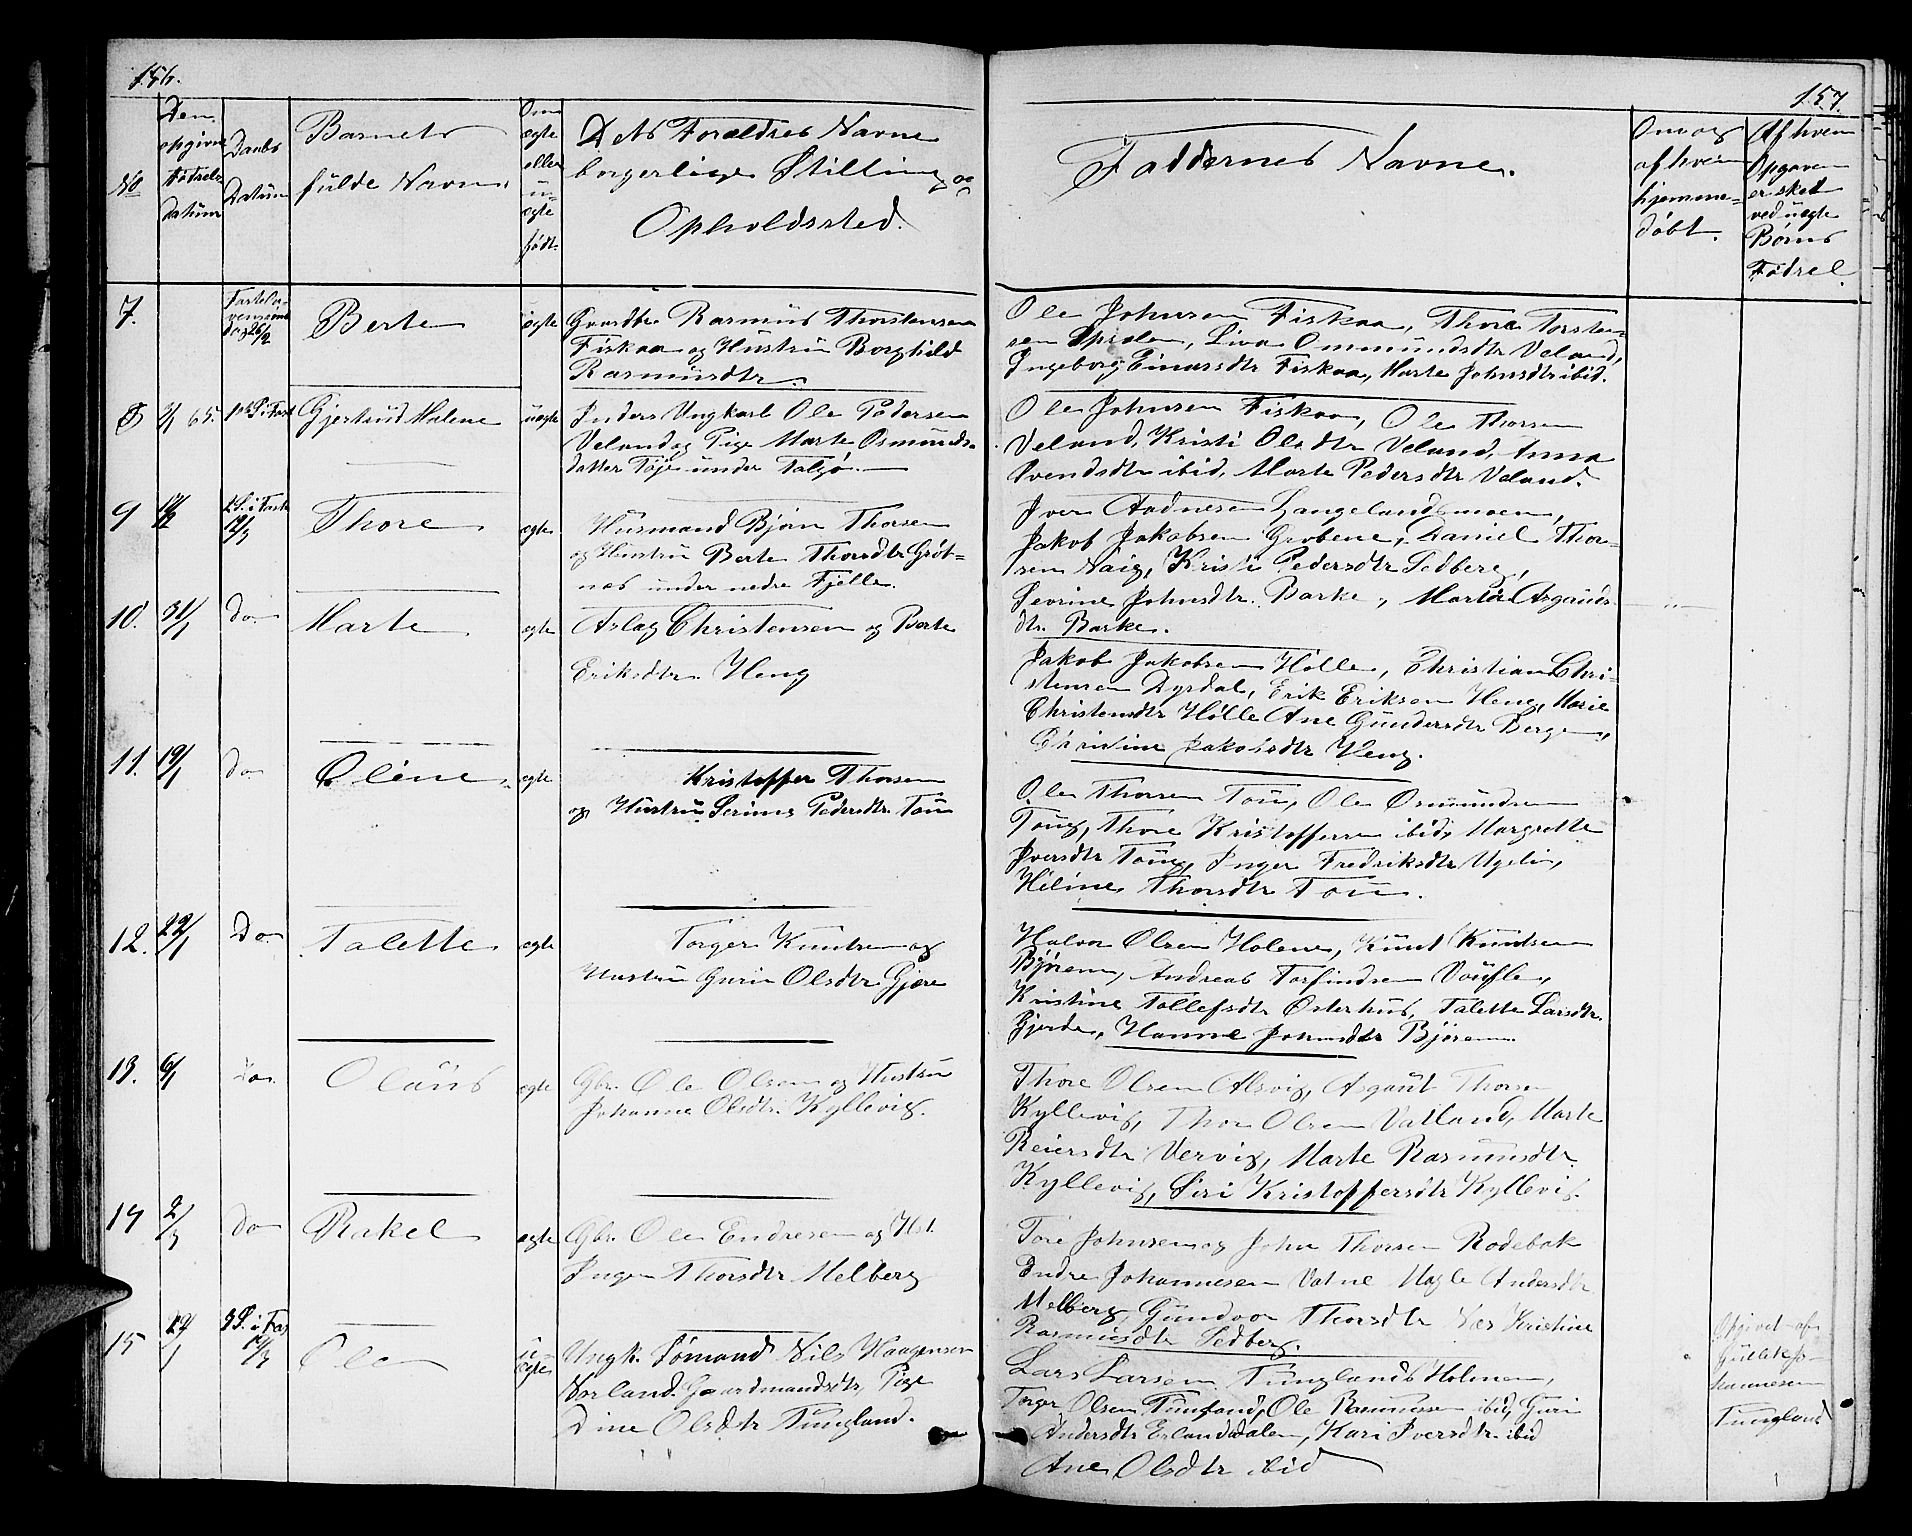 156.
No
Den opgivne Fødsels datum
Daabs Datum
Barnets fulde Navn.
Om ægte eller uægte født.
Dets Forældres Navne borgerlige Stilling og Opholdssted.
7.
Fastelavenssøndag 26/2
Berte
ægte
Gaardbr. Rasmus Thorstensen
Fiskaa og Hustru Borghild
Rasmusdtr.
8
65.
Gjertrud Malene
uægte
Inders Ungkarl Ole Pedersen
Veland og Pige Marte Osmunds-
datter Tøje under Talgø.
9
2 S. i Faste 12/3
Thore
ægte
Husmand Bjørn Thorsen
og Hustru Berte Thorsdtr Grøt-
nes under nedre Fjelle.
10.
31/1
Do
Marte
ægte
Aslag Christensen og Berte
Eriksdtr. Heng
11.
19/1
Do
Oline
ægte
Kristoffer Thorsen
og Hustru Serine Pedersdtr. Tou
12.
22/1
Do
Talette
ægte
Torger Knutsen og
Hustru Guri Olsdtr Gjære
13.
6/1
Do.
Olaus
ægte
Gbr. Ole Olsen og Hustru
Johanne Olsdtr. Kyllevig.
14
2/3
Do
Rakel
ægte
Gbr. Ole Endresen og Hst.
Inger Thorsdtr Melberg
15
3 S. i Fas 19/3
Ole
u-
ægte
Ungk. Sømand Nils Haagensen
Norland. Gaardmandsdtr, Pige
Dine Olsdtr Tungland.
157.
Faddernes Navne.
Om og af hvem hjemme-døbt.
Af hvem Opgaven er sket ved uægte Børns Fødsel.
Ole Johnsen Fiskaa, Thore Torsten-
sen Spislen, Liva Ommundsdtr Veland,
Ingeborg Einarsdtr Fiskaa, Marte Johnsdtr ibid.
Ole Johnsen Fiskaa, Ole Thorsen
Veland, Kristi Olsdtr Veland, Anna
Svendsdtr ibid, Marte Pedersdtr Veland.
Iver Aadnesen Langelandsmoen,
Jakob Jakobsen Grobene, Daniel Thor-
sen Vaig, Kristi Pedersdtr Sedberg,
Sevrine Johnsdtr. Barke, Marta Asgauts-
dtr. Barke.
Jakob Jakobsen Hølle, Christian Chri-
stensen Dyrdal, Erik Eriksen Heng, Marie
Christensdtr Hølle Ane Gundersdtr Berge,
Christine Jakobsdtr Heng.
Ole Thorsen Tou, Ole Osmundsen
Toug, Thore Kristoffersen ibid, Margrette
Iversdtr Toug, Inger Fredriksdtr Ugelin,
Heline Thorsdtr Tou.
Halvor Olsen Holene, Knut Knudsen
Bjøren, Andreas Torfindsen Voufle,
Kristine Tollefsdtr Østerhus, Talette Larsdtr.
Gjerde, Hanne Johnsdtr Bjøren.
Thore Olsen Alsvig, Asgaut Thorsen
Kyllevig, Thore Olsen Vatland, Marte
Reiersdtr Vervig, Marte Rasmusdtr.
Kyllevig, Siri Kristoffersdtr Kyllevig.
Tore Johnsen og John Thorsen Rodebak
Endre Johannesen Vatne Magle Andersdtr
Melberg, Gundvor Thorsdtr Næs Kristine
Rasmusdtr Sedberg.
Lars Larsen Tunglands Holmen,
Torger Olsen Tungland, Ole Rasmussen ibid, Guri
Andersdtr Erlandsdalen, Kari Iversdtr ibid
Ane Olsdtr ibid
Opgivet af
Gullek Jo-
hannesen
Tungland